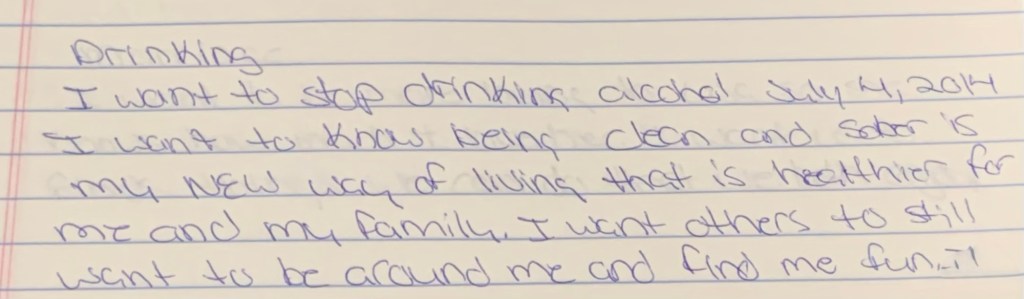 Drinking
I want to stop drinking alcohol July 4, 2014
I want to know being clean and sober is
my NEW way of living that is healthier for
me and my family. I want others to still
want to be around me and find me fun.